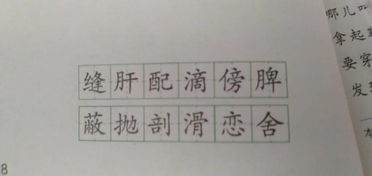 缝肝配滴傍脾
蔽抛剖滑恋舍
哪儿
拿起
要穿
发
8